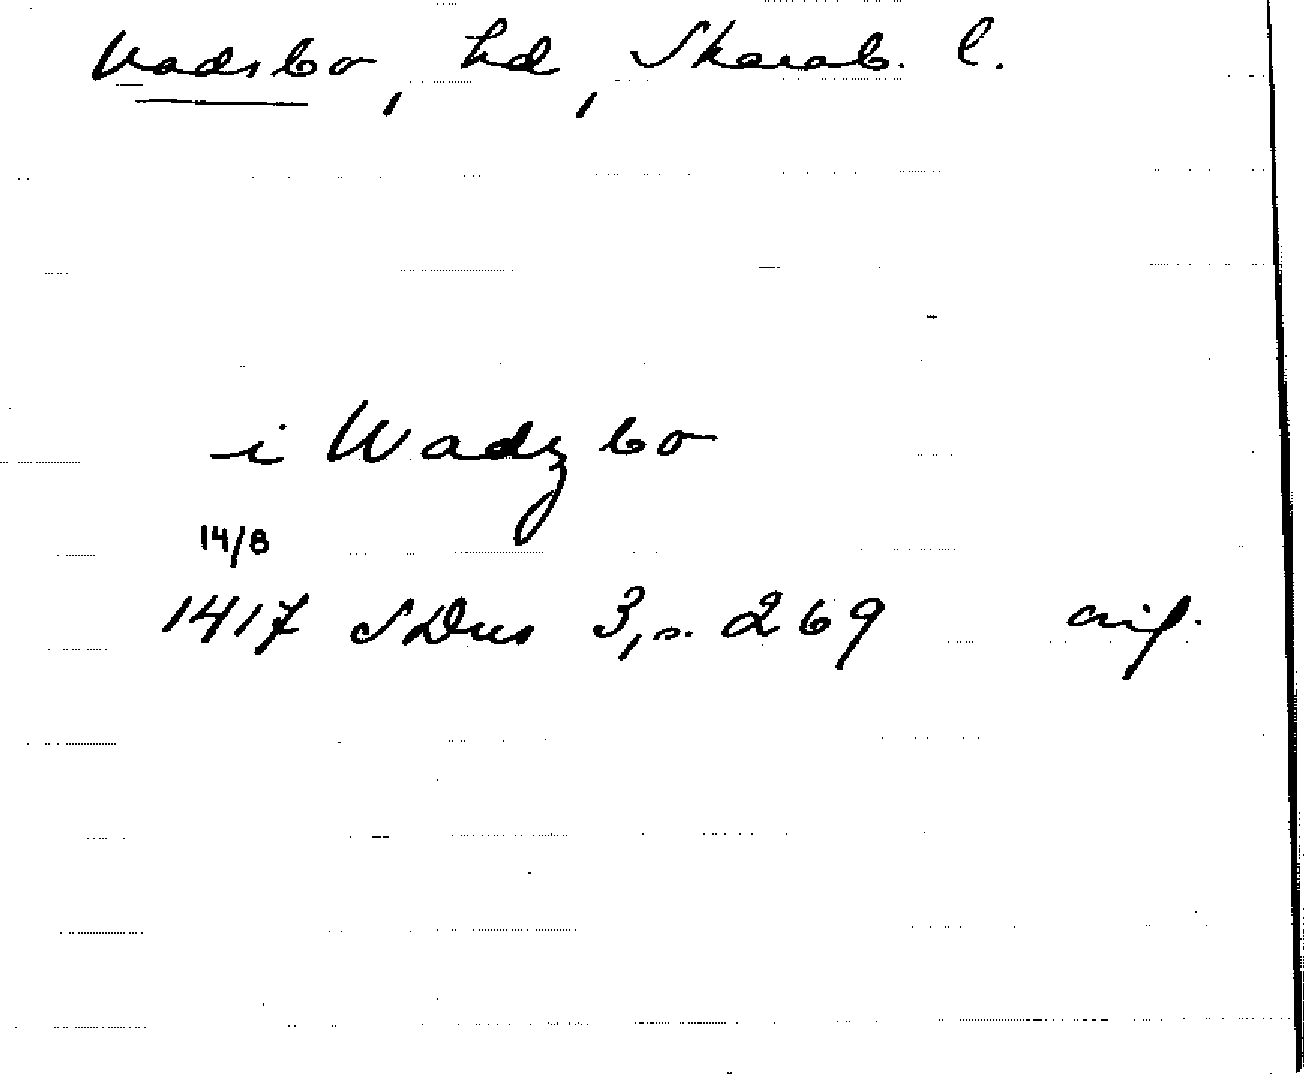 Vadsbo, hd, Skarab. l.
i Wadzbo
14/8
1417 SDns 3, s. 269 avf.